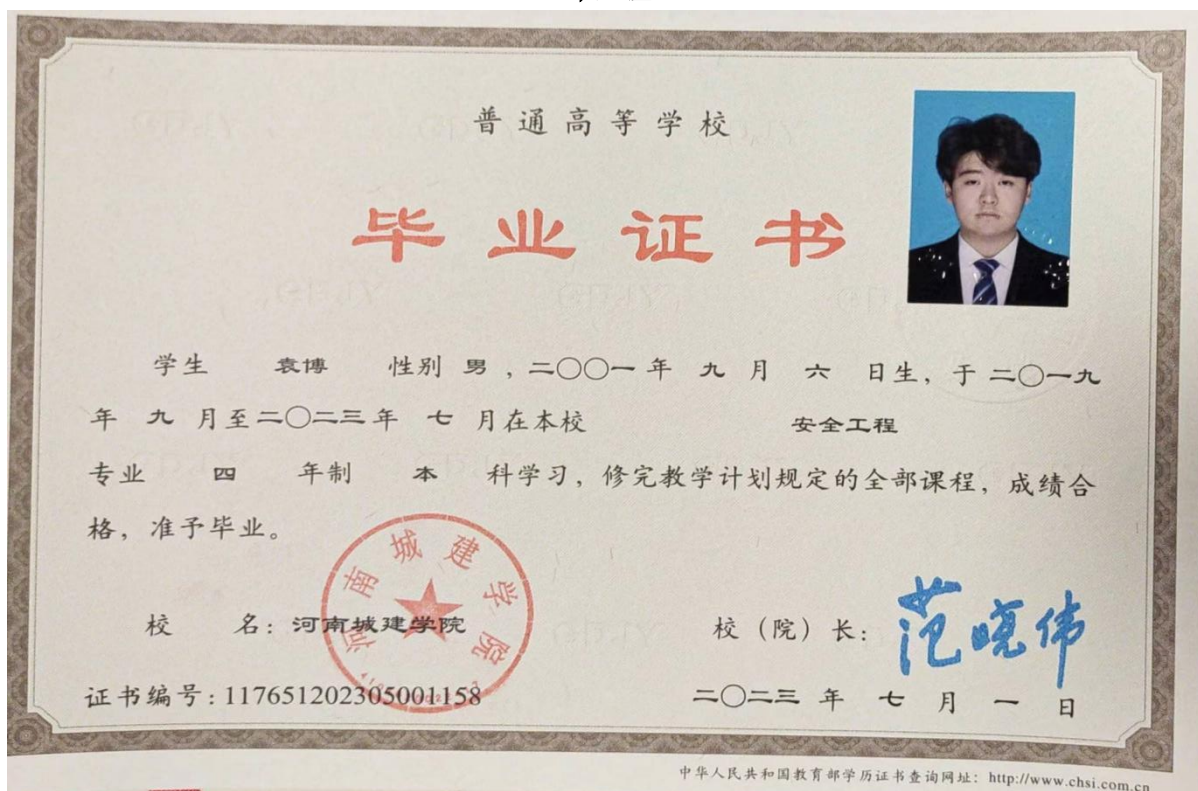 普通高等学校
毕业证书
学生 袁博 性别 男，二〇〇一年 九 月 六 日生，于二〇一九
年 九 月至二〇二三年 七 月在本校 安全工程
专业 四 年制 本 科学习，修完教学计划规定的全部课程，成绩合
格，准予毕业。
河南城建学院
校 名：河南城建学院 校（院）长：范晓伟
证书编号：117651202305001158 二〇二三 年 七 月 一 日
中华人民共和国教育部学历证书查询网址：http://www.chsi.com.cn